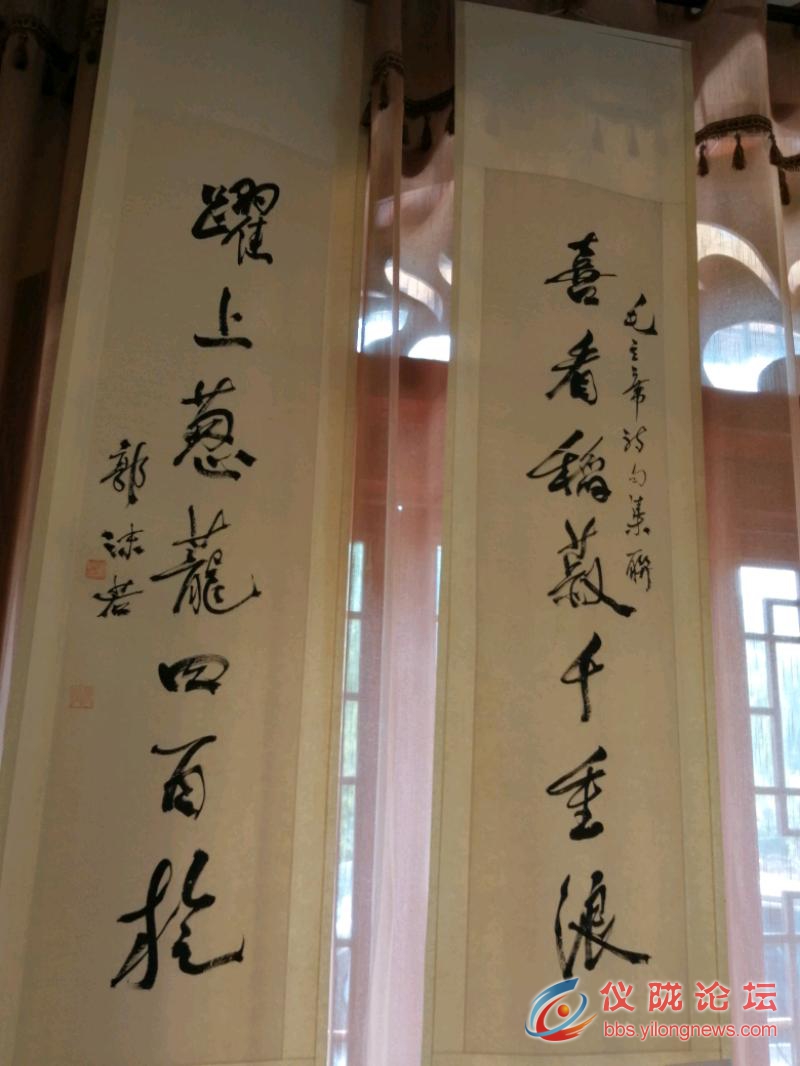 毛主席詩句集聯
喜看稻菽千重浪
躍上葱蘢四百旋
郭沫若
仪陇论坛
bbs.yilongnews.com